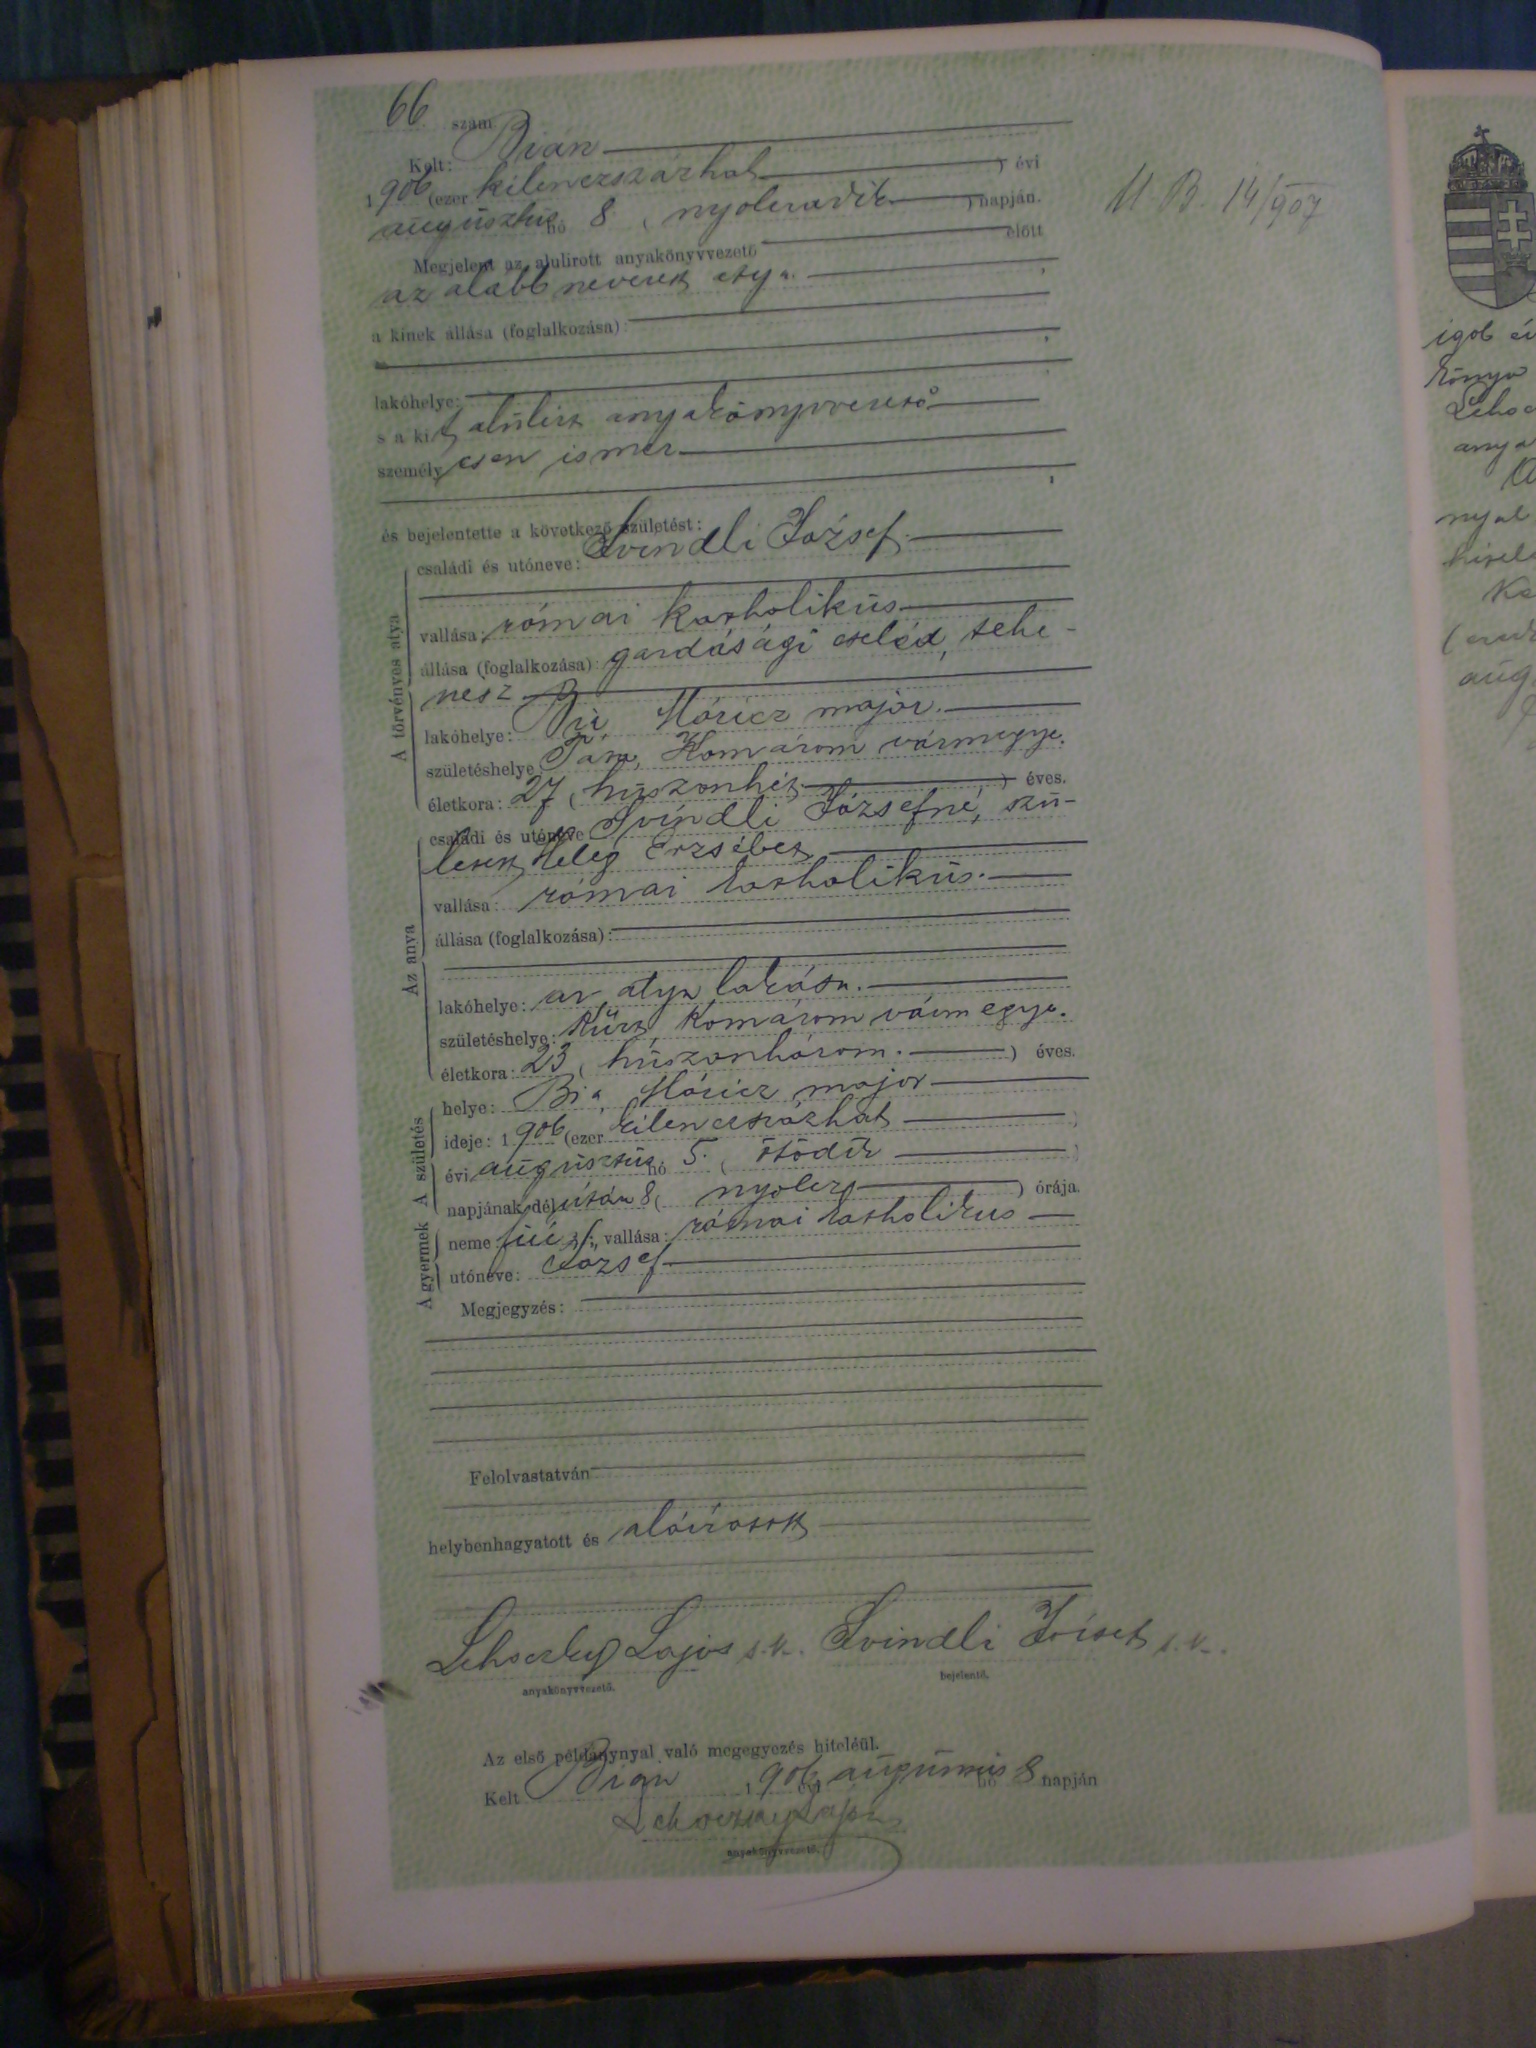 66 szám
Kelt: Bián
1906 (ezer kilenczszázhat) évi
augusztus hó 8 (nyolczadik) napján.
Megjelent az alulirott anyakönyvvezető előtt
az alább nevezett atya.
a kinek állása (foglalkozása)
lakóhelye:
s a kit alulirt anyakönyvvezető
személyesen ismer
és bejelentette a következő születést:
A törvényes atya
családi és utóneve: Svindli József.
vallása: római katholikus
állása (foglalkozása): gazdasági cseléd, tehe-
nesz
lakóhelye: Bia, Móricz major.
születéshelye: Komárom vármegye.
életkora: 27 (huszonhét) éves.
Az anya
családi és utóneve Svindli Józsefné, szü-
letett Erzsébet
vallása: római katholikus.
állása (foglalkozása):
lakóhelye: az atya lakása.
születéshelye: Kürt, Komárom vármegye.
életkora: 23 (huszonhárom.) éves.
A születés
helye: Bia, Móricz major
ideje: 1906 (ezer kilenczszázhat)
évi augusztus hó 5. (ötödik)
napjának délután 8 (nyolcz) órája.
A gyermek
neme: fiú vallása: római katholikus
utóneve: József
Megjegyzés:
Felolvastatván
helybenhagyatott és aláiratott
Lehoczky Lajos s.k. Svindli József s.k.
anyakönyvvezető. bejelentő.
Az első példánynyal való megegyezés hiteléül.
Kelt Bián 1906 évi augusztus hó 8 napján
Lehoczky Lajos
anyakönyvvezető.
M B. 14/907
1906 év
könyv
Lehoc
anya
nyul
hitel
Ke
aug